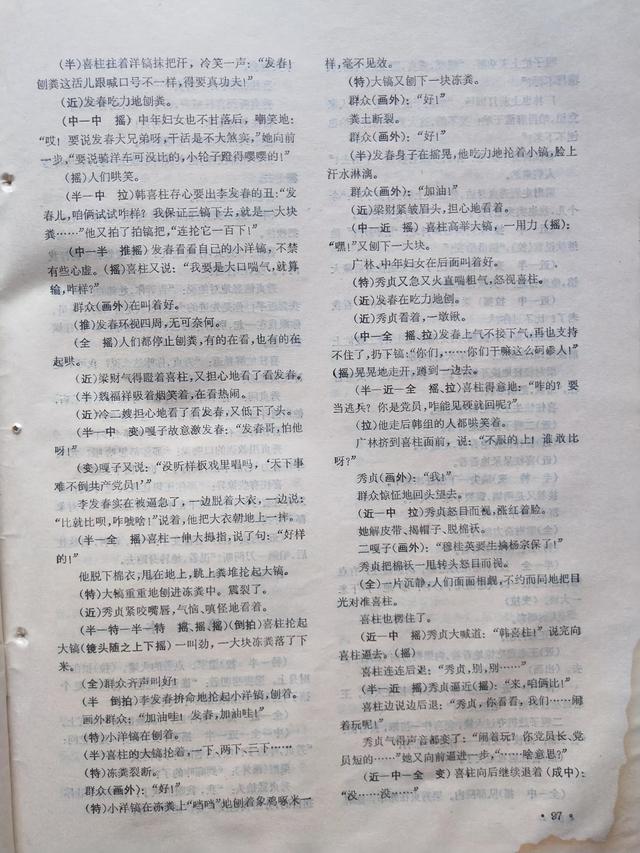 (半)喜柱拄着洋镐抹把汗，冷笑一声：“发春！
刨粪这活儿跟喊口号不一样，得要真功夫！”
(近)发春吃力地刨粪。
(中一中 摇)中年妇女也不甘落后，嘲笑地：
“哎！要说发春大兄弟呀，干活是不大煞实，”她向前
一步，“要说骑洋在可没比的，小轮子蹬得嘤嘤的！”
(摇)人们哄笑。
(半一中 拉)韩喜柱存心要出李发春的丑：“发
春儿，咱俩试试咋样？我保证三镐下去，就是一大块
粪……”他又拍了拍镐把，“连抡它一百下！”
(中一半 推摇)发春看看自己的小洋镐，不禁
有些心虚。(摇)喜柱又说：“我要是大口喘气，就算
输，咋样？”
群众(画外)在叫着好。
(推)发春环视四周，无可奈何。
(全 摇)人们都停止刨粪，有的在看，也有的在
起哄。
(近)梁财气得瞪着喜柱，又担心地看了看发春。
(半)魏福祥吸着烟笑着，在看热闹。
(近)冷二嫂担心地看了看发春，又低下了头。
(半一中 变)嘎子故意激发春：“发春哥，怕他
呀！”
(变)嘎子又说：“没听样板戏里唱吗，‘天下事
难不倒共产党员！’”
李发春实在被逼急了，一边脱着大衣，一边说：
“比就比呗，咋唬啥！”说着，他把大衣朝地上一摔。
(半一全 摇)喜柱一伸大拇指，说了句：“好样
的！”
他脱下棉衣，甩在地上，跳上粪堆抡起大镐。
(特)大镐重重地刨进冻粪中。震裂了。
(近)秀贞紧咬嘴唇，气恼、嗔怪地看着。
(半一特一半一特 摇、摇、摇)(倒拍)喜柱抡起
大镐(镜头随之上下摇)一叫劲，一大块冻粪落了下
来。
(全)群众齐声叫好！
(半 倒拍)李发春拚命地抡起小洋镐，刨着。
画外群众：“加油哇！发春，加油哇！”
(特)小洋镐在刨着。
(中)喜柱的大镐抡着，一下、两下、三下……
(特)冻粪裂断。
群众(画外)：“好！”
(特)小洋镐在冻粪上“噹噹”地刨着象鸡啄米一
样，毫不见效。
(特)大镐又刨下一块冻粪。
群众(画外)：“好！”
粪土断裂。
群众(画外)：“好！”
(半)发春身子在摇晃，他吃力地抡着小镐，脸上
汗水淋漓。
群众(画外)：“加油！”
(近)梁财紧皱眉头，担心地看着。
(中一近 摇)喜柱高举大镐，一用力(摇)：
“嘿！”又刨下一大块。
广林、中年妇女在后面叫着好。
(特)秀贞又急又火直喘粗气，怒视喜柱。
(近)发春在吃力地刨。
(近)秀贞看着，一墩锹。
(中一全 摇、拉)发春上气不接下气，再也支持
不住了，扔下镐：“你们，……你们干嘛这么砢碜人！”
(摇)晃晃地走开，蹲到一边去。
(半一近一全 摇、拉)喜柱得意地：“咋的？要
当逃兵？你是党员，咋能见硬就回呢？”
(拉)他走后韩组的人都哄笑着。
广林挤到喜柱面前，说：“不服的上！谁敢比
呀？”
秀贞(画外)：“我！”
群众惊怔地回头望去。
(近一中 摇)秀贞怒目而视，涨红着脸。
她解皮带、揭帽子、脱棉袄。
二嘎子(画外)：“穆桂英要生擒杨宗保了！”
秀贞把棉袄一甩转头怒目而视。
(全)一片沉静，人们面面相觑，不约而同地把目
光对准喜柱。
喜柱也愣住了。
(近一中 摇)秀贞大喊道：“韩喜柱！”说完向
喜柱逼去。(摇)
喜柱连连后退：“秀贞，别，别……”
(半一近 摇)秀贞逼近(摇)：“来，咱俩比！”
喜柱边说边后退：“秀贞，你看看，我们……闹
着玩呢！”
秀贞气得声音都变了：“闹着玩？你党员长、党
员短的……”她又向前逼进一步，“……啥意思？”
(近一中一全 变)喜柱向后继续退着(成中)：
“没……没……”
·97·